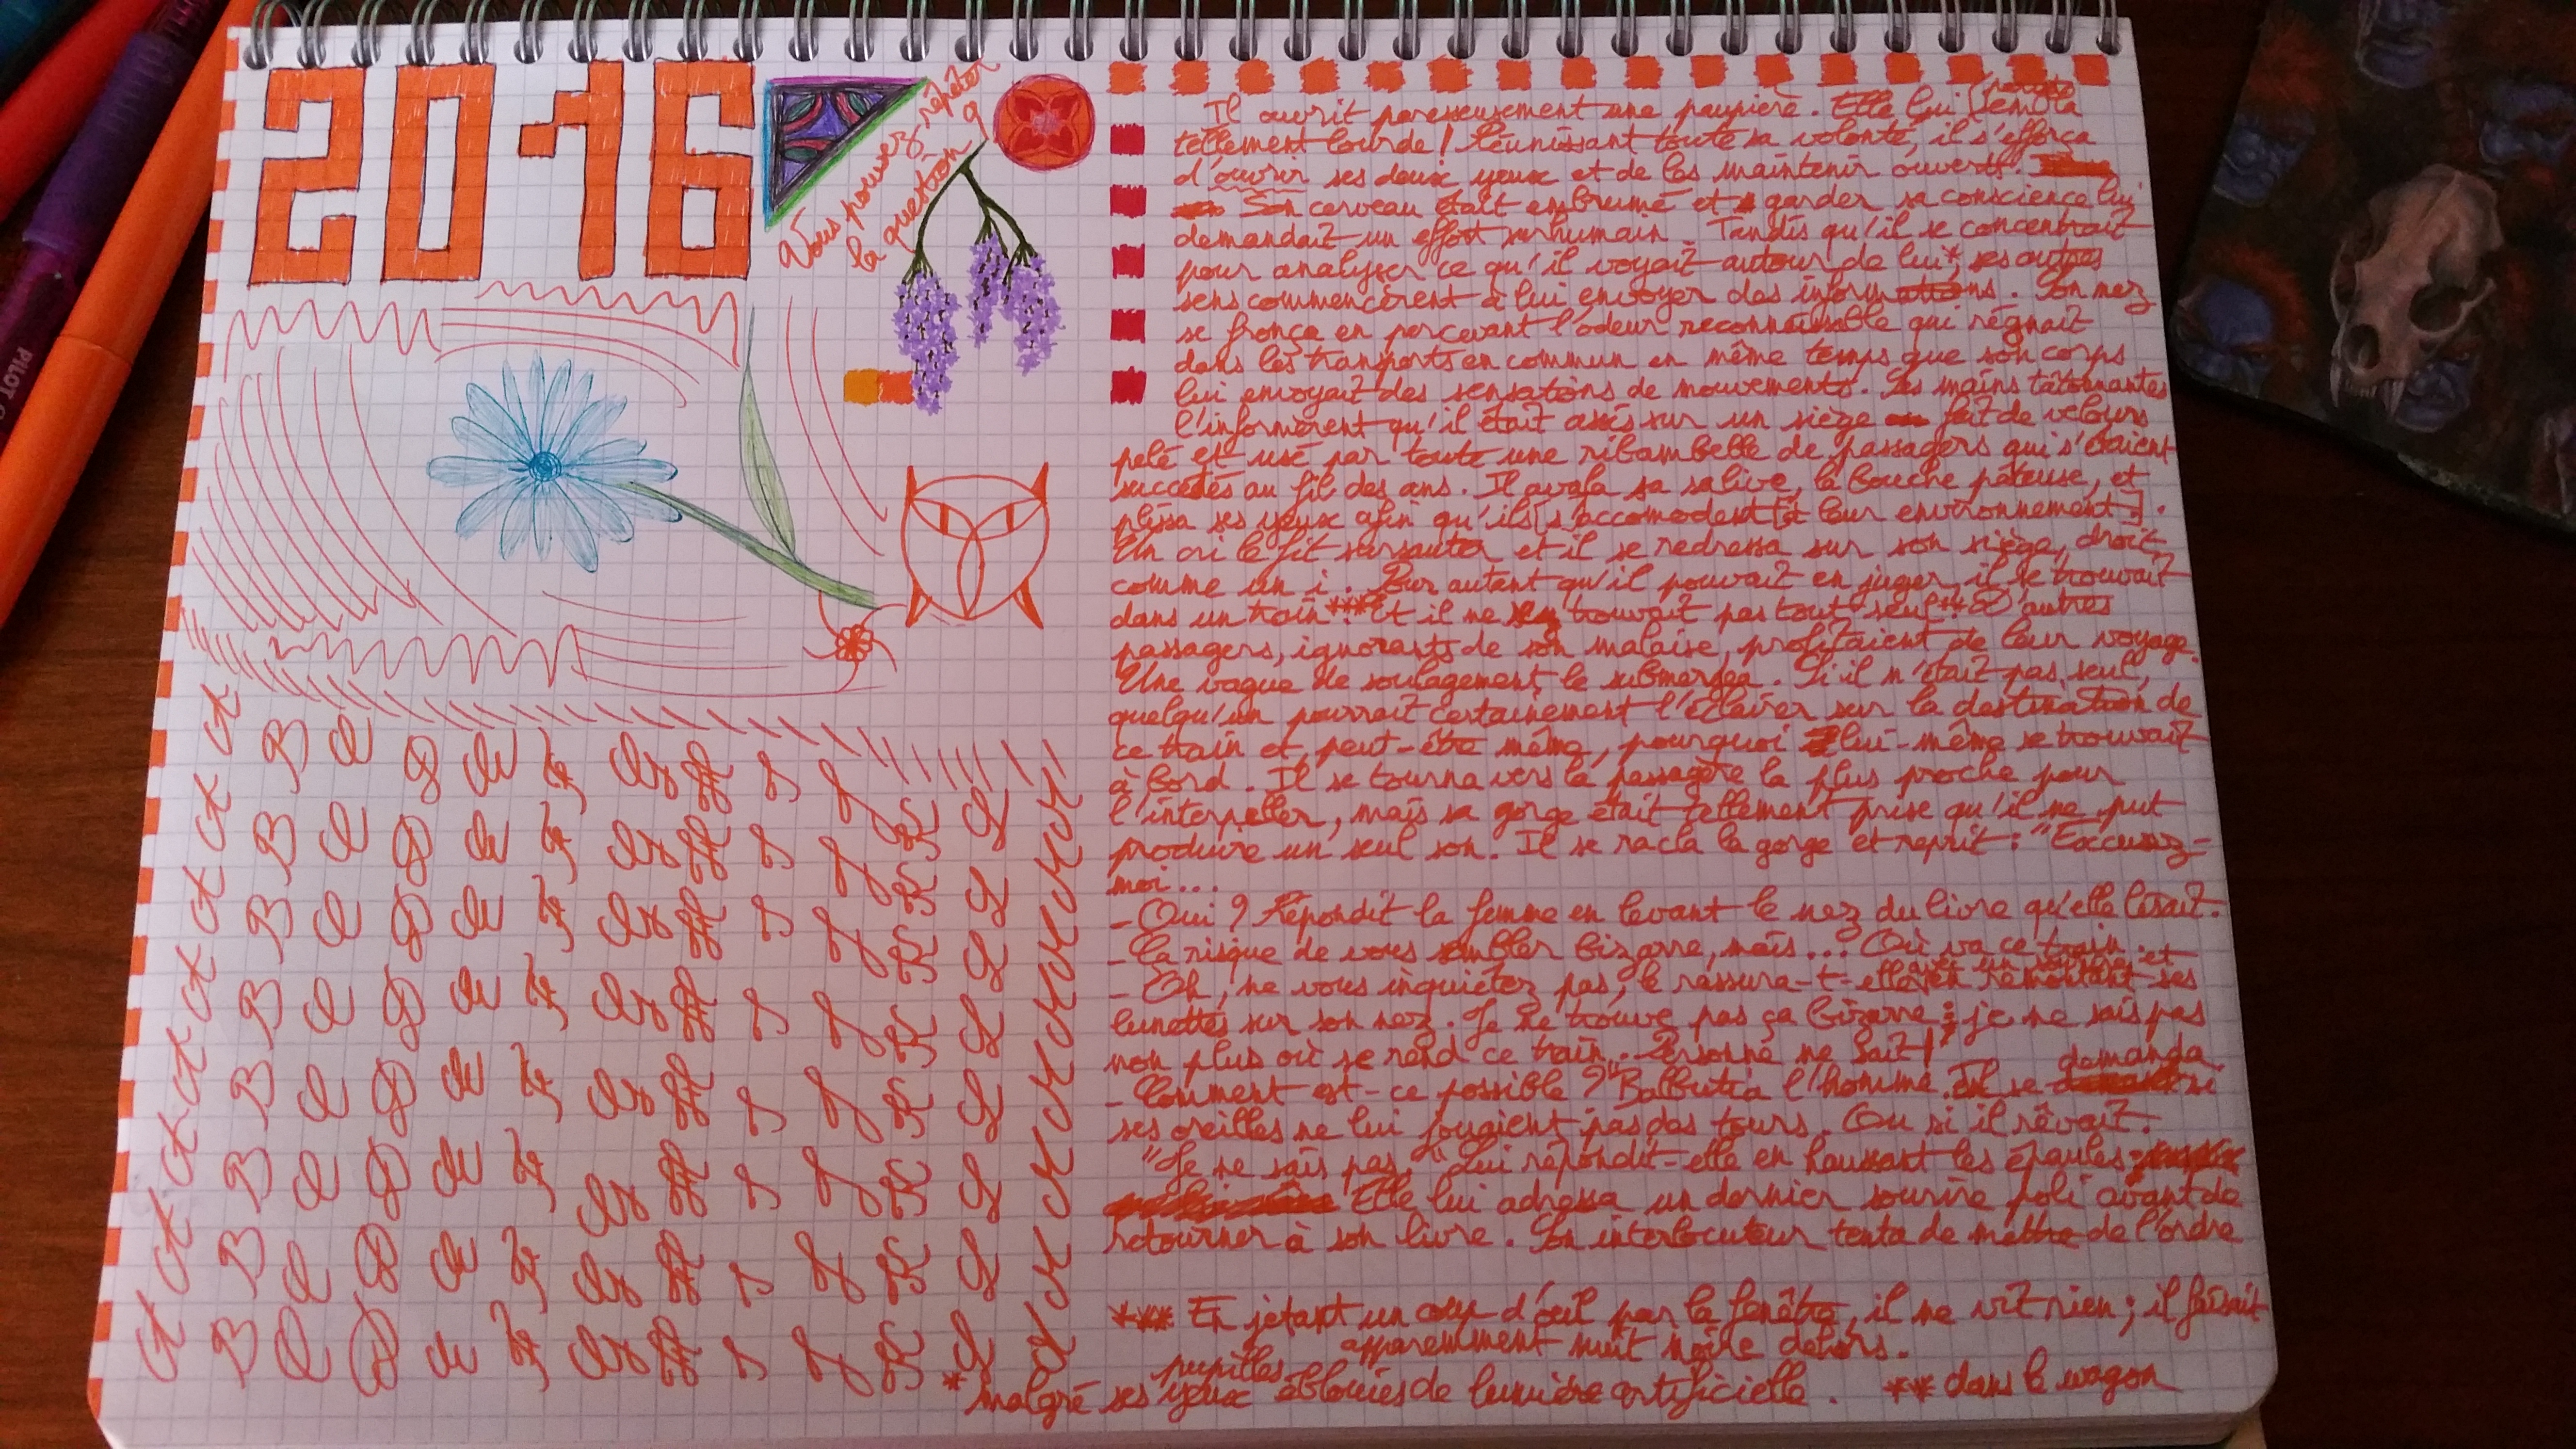 2016
Vous pouvez répéter
la question ?
PILOT
Il ouvrit paresseusement une paupière. Elle lui sembla
tellement lourde ! Réunissant toute sa volonté, il s'efforça
d'ouvrir ses deux yeux et de les maintenir ouverts.
Son cerveau était embrumé et garder sa conscience lui
demandait un effort surhumain. Tandis qu'il se concentrait
pour analyser ce qu'il voyait autour de lui*, ses autres
sens commencèrent à lui envoyer des informations. Son nez
se fronça en percevant l'odeur reconnaissable qui régnait
dans les transports en commun en même temps que son corps
lui envoyait des sensations de mouvements. Ses mains tâtonnantes
l'informèrent qu'il était assis sur un siège fait de velours
pelé et usé par toute une ribambelle de passagers qui s'étaient
succédés au fil des ans. Il avala sa salive, la bouche pâteuse, et
plissa ses yeux afin qu'ils [s'accomodent [à leur environnement].
Un cri le fit sursauter et il se redressa sur son siège, droit
comme un i. Pour autant qu'il pouvait en juger, il se trouvait
dans un train***. Et il ne se trouvait pas tout seul**. D'autres
passagers, ignorants de son malaise, profitaient de leur voyage.
Une vague de soulagement le submergea. Si il n'était pas seul,
quelqu'un pourrait certainement l'éclairer sur la destination de
ce train et, peut-être même, pourquoi lui-même se trouvait
à bord. Il se tourna vers la passagère la plus proche pour
l'interpeller, mais sa gorge était tellement prise qu'il ne put
produire un seul son. Il se racla la gorge et reprit : "Excusez-
moi...
- Oui ? Répondit la femme en levant le nez du livre qu'elle lisait.
- Ca risque de vous sembler bizarre, mais... Où va ce train
- Oh, ne vous inquiétez pas, le rassura-t-elle avec un sourire et en remontant ses
lunettes sur son nez. Je ne trouve pas ça bizarre ; je ne sais pas
non plus où se rend ce train. Personne ne sait !
- Comment est-ce possible ?" Balbutia l'homme. Il se demanda si
ses oreilles ne lui jouaient pas des tours. Ou si il rêvait.
"Je ne sais pas." Lui répondit-elle en haussant les épaules.
Elle lui adressa un dernier sourire poli avant de
retourner à son livre. Son interlocuteur tenta de mettre de l'ordre
*** En jetant un coup d'œil par la fenêtre, il ne vit rien ; il faisait
apparemment nuit noire dehors.
* malgré ses yeux pupilles éblouies de lumière artificielle. ** dans le wagon